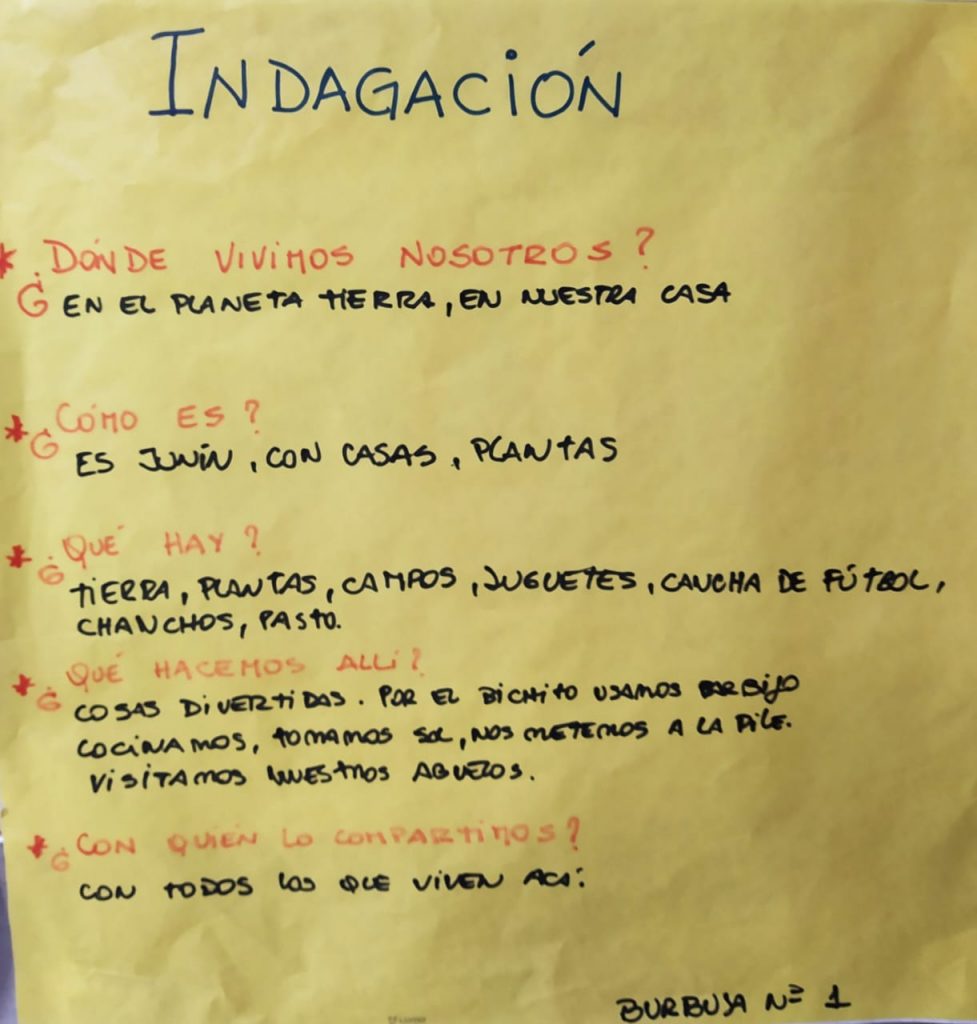 INDAGACIÓN
* ¿DÓNDE VIVIMOS NOSOTROS?
EN EL PLANETA TIERRA, EN NUESTRA CASA
* ¿CÓMO ES?
ES JUNÍN, CON CASAS, PLANTAS
* ¿QUÉ HAY?
TIERRA, PLANTAS, CAMPOS, JUGUETES, CANCHA DE FÚTBOL,
CHANCHOS, PASTO.
* ¿QUÉ HACEMOS ALLÍ?
COSAS DIVERTIDAS. POR EL BICHITO USAMOS BARBIJO
COCINAMOS, TOMAMOS SOL, NOS METEMOS A LA PILE.
VISITAMOS NUESTROS ABUELOS.
* ¿CON QUIÉN LO COMPARTIMOS?
CON TODOS LOS QUE VIVEN ACÁ.
BURBUJA Nº 1